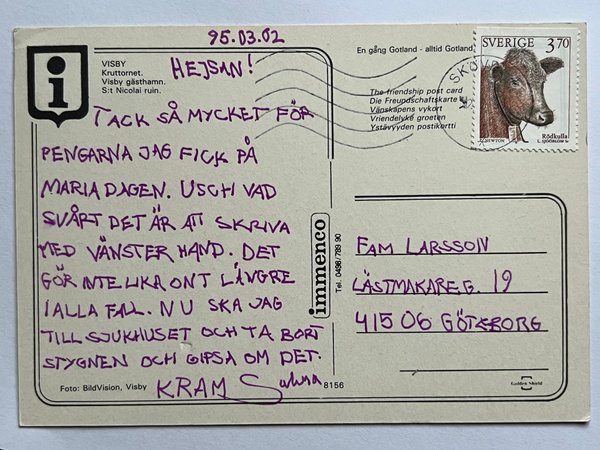 95.03.02
i
VISBY
Kruttornet.
Visby gästhamn.
S:t Nicolai ruin.
HEJSAN!
TACK SÅ MYCKET FÖR
PENGARNA JAG FICK PÅ
MARIADAGEN. USCH VAD
SVÅRT DET ÄR ATT SKRIVA
MED VÄNSTER HAND. DET
GÖR INTE LIKA ONT LÄNGRE
IALLA FALL. NU SKA JAG
TILL SJUKHUSET OCH TA BORT
STYGNEN OCH GIPSA OM DET.
KRAM
Foto: BildVision, Visby
8156
immenco
Tel. 0498/789 90
En gång Gotland - alltid Gotland
The friendship post card
Die Freundschaftskarte
Vänskapens vykort
Vriendelyke groeten
Ystävyyden postikortti
SKÖVD
SVERIGE 3,70
Rödkulla
FAM LARSSON
LÄSTMAKAREG. 19
415 06 GÖTEBORG
Golden Shield